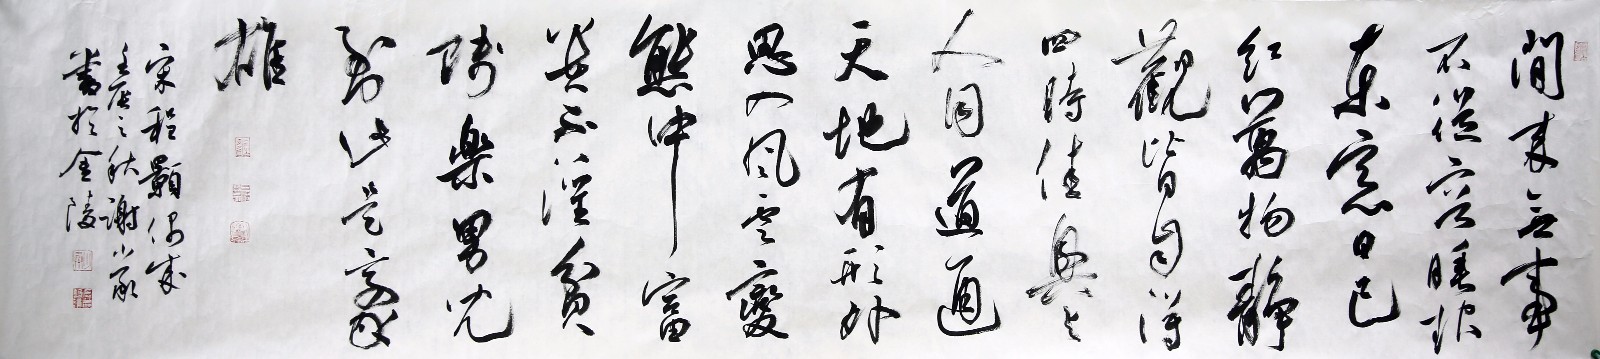 閒來無事
不從容睡覺
東窗日已
紅萬物靜
觀皆自得
四時佳興与
人同道通
天地有形外
思入風雲變
態中富
貴不淫貧
賤樂男兒
到此是豪
雄
宋程顥偶成
壬辰之秋謝小
書於金陵